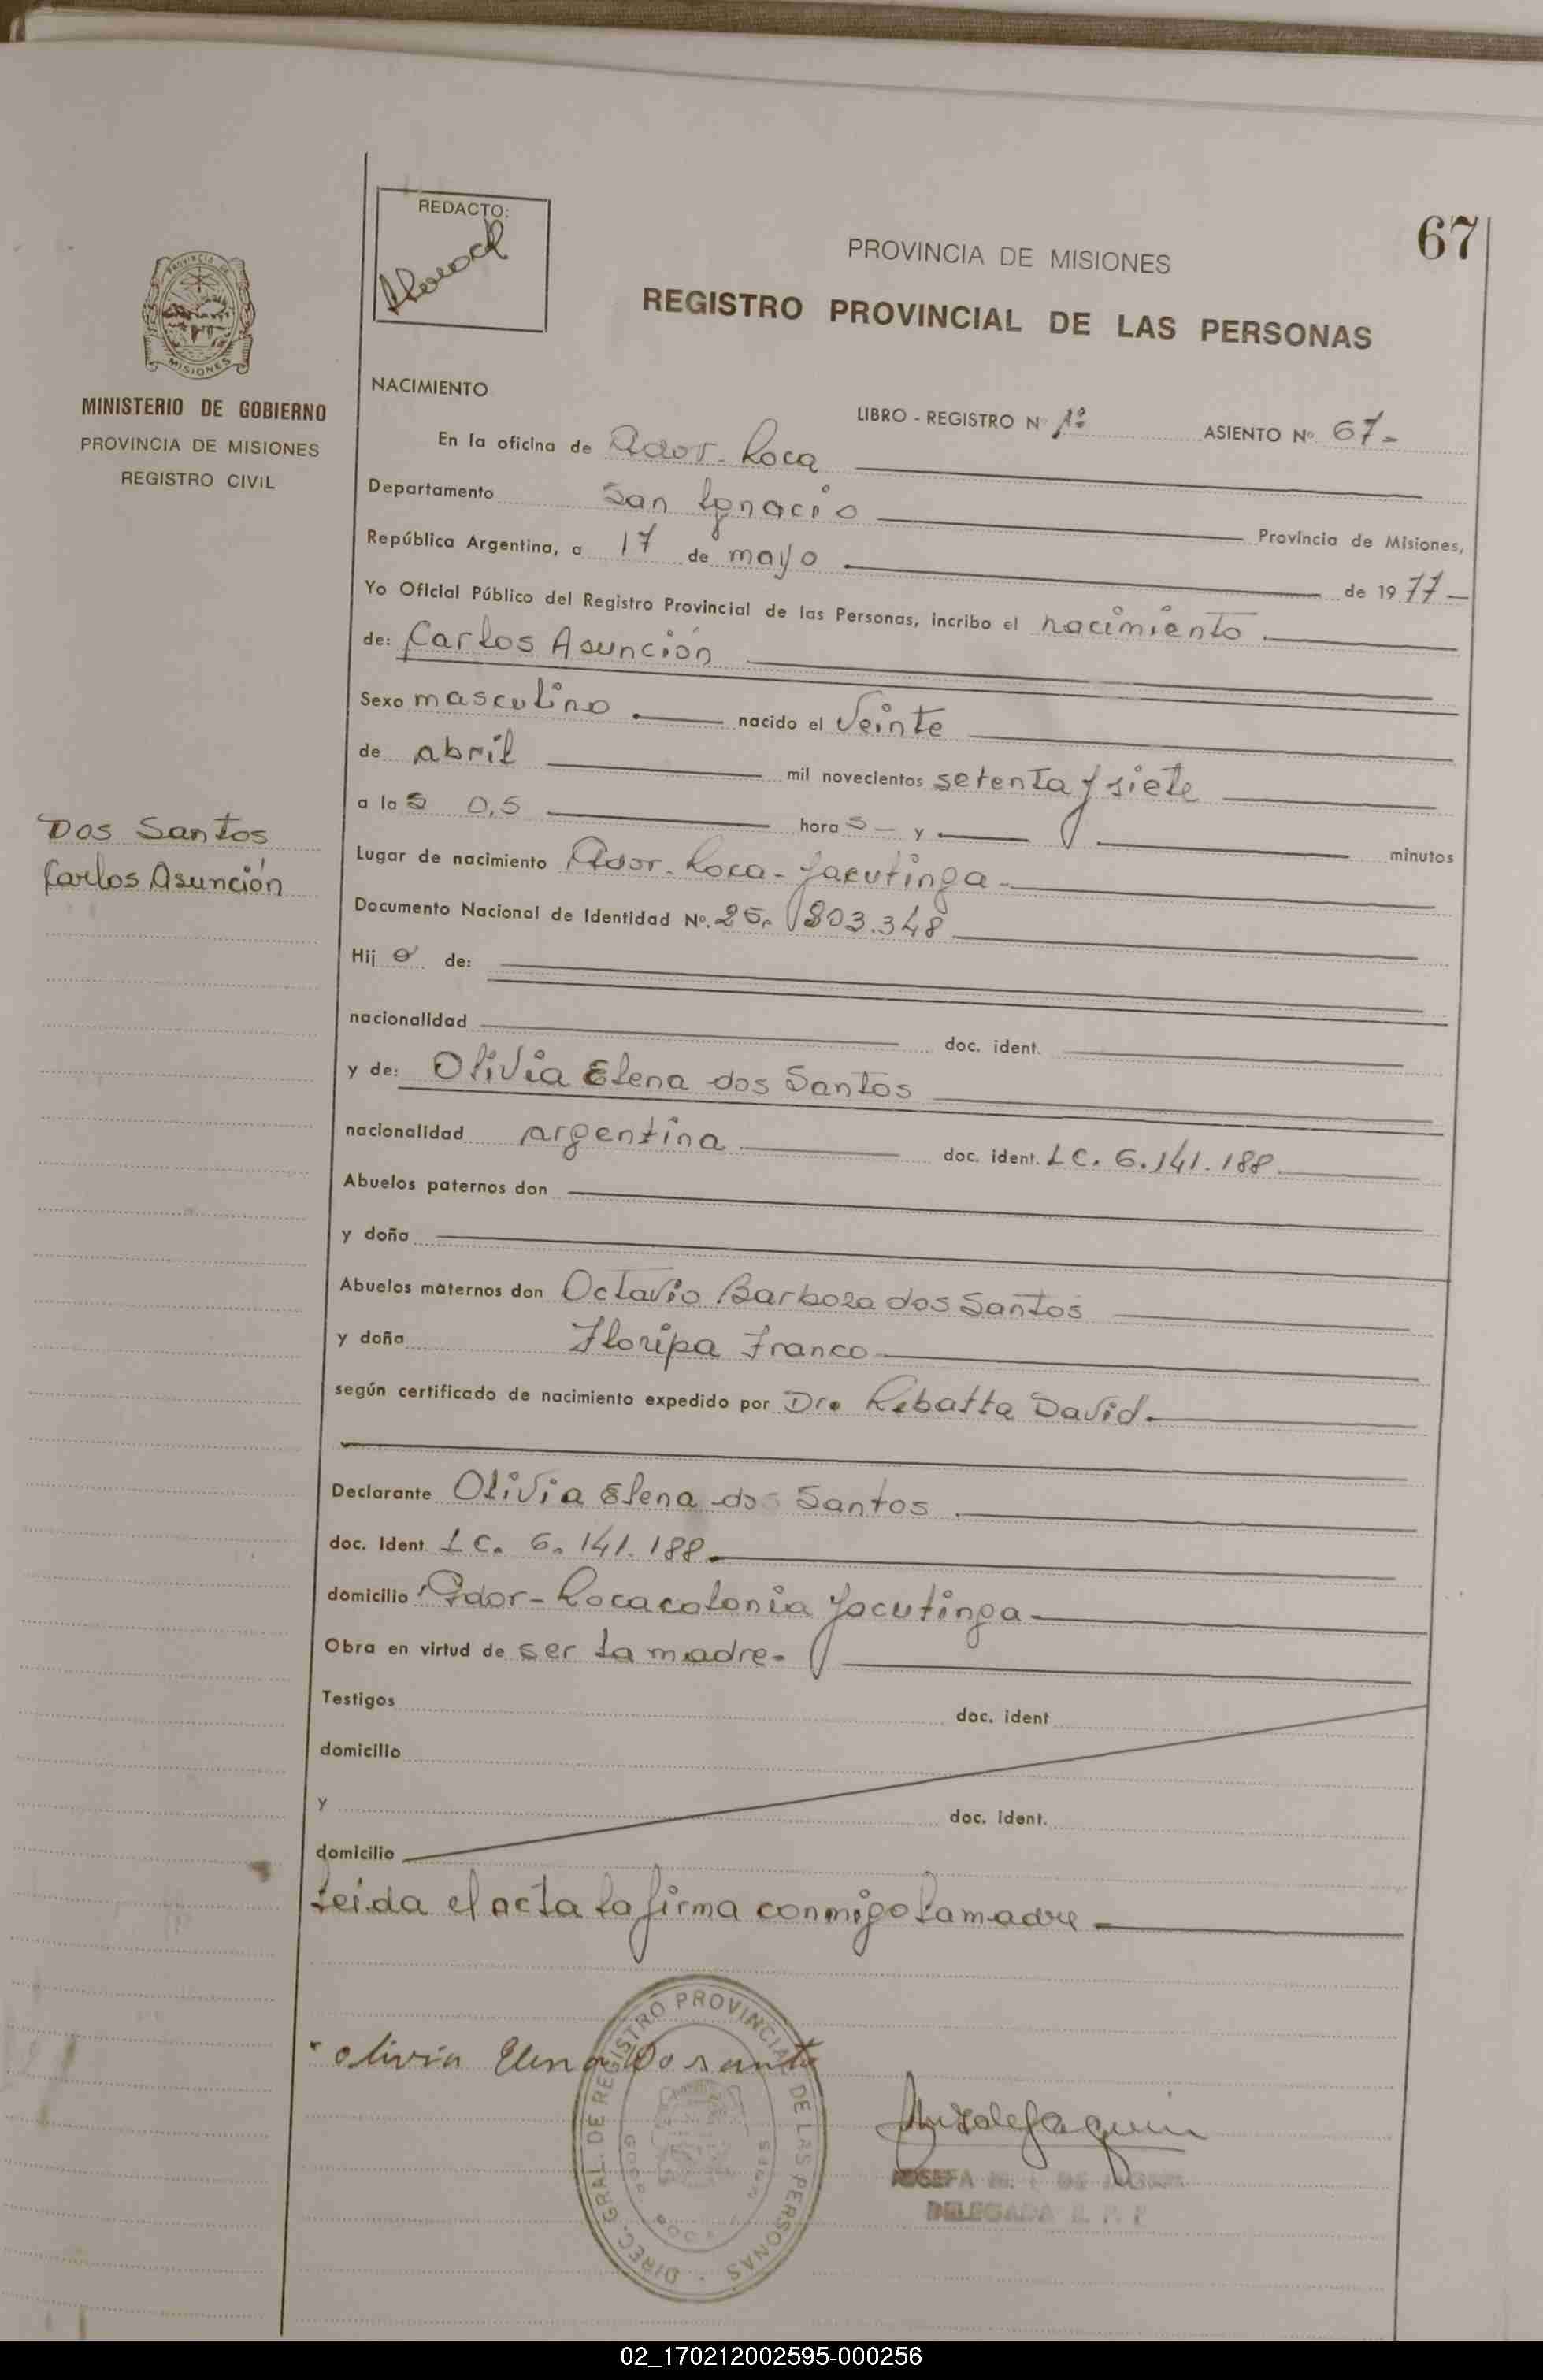 REDACTO:
67
PROVINCIA DE MISIONES
REGISTRO PROVINCIAL DE LAS PERSONAS
MISIONES
MINISTERIO DE GOBIERNO
PROVINCIA DE MISIONES
REGISTRO CIVIL
Dos Santos
Carlos Asunción
NACIMIENTO
LIBRO - REGISTRO Nº 1º ASIENTO Nº 67-
En la oficina de Gdor. Roca
Departamento San Ignacio Provincia de Misiones,
República Argentina, a 17 de mayo de 1977-
Yo Oficial Público del Registro Provincial de las Personas, incribo el nacimiento
de: Carlos Asunción
Sexo masculino nacido el Veinte
de abril mil novecientos setenta y siete
a las 0,5 horas - y minutos
Lugar de nacimiento Gdor. Roca - Jacutinga -
Documento Nacional de Identidad Nº. 25. 803.348
Hijo de:
nacionalidad doc. ident.
y de: Olivia Elena dos Santos
nacionalidad argentina doc. ident. L C. 6.141.188
Abuelos paternos don
y doña
Abuelos maternos don Octavio Barboza dos Santos
y doña Floripa Franco
según certificado de nacimiento expedido por Dr. Rebatta David.
Declarante Olivia Elena dos Santos
doc. Ident L C. 6. 141. 188.
domicilio Gdor - Roca colonia Jacutinga
Obra en virtud de ser la madre.
Testigos doc. ident
domicilio
y doc. ident.
domicilio
Leida el acta la firma conmigo la madre
olivia Elena Do santo
DIREC. GRAL. DE REGISTRO PROVINCIAL DE LAS PERSONAS
JOSEFA DE
DELEGADA R. P. P.
02_170212002595-000256